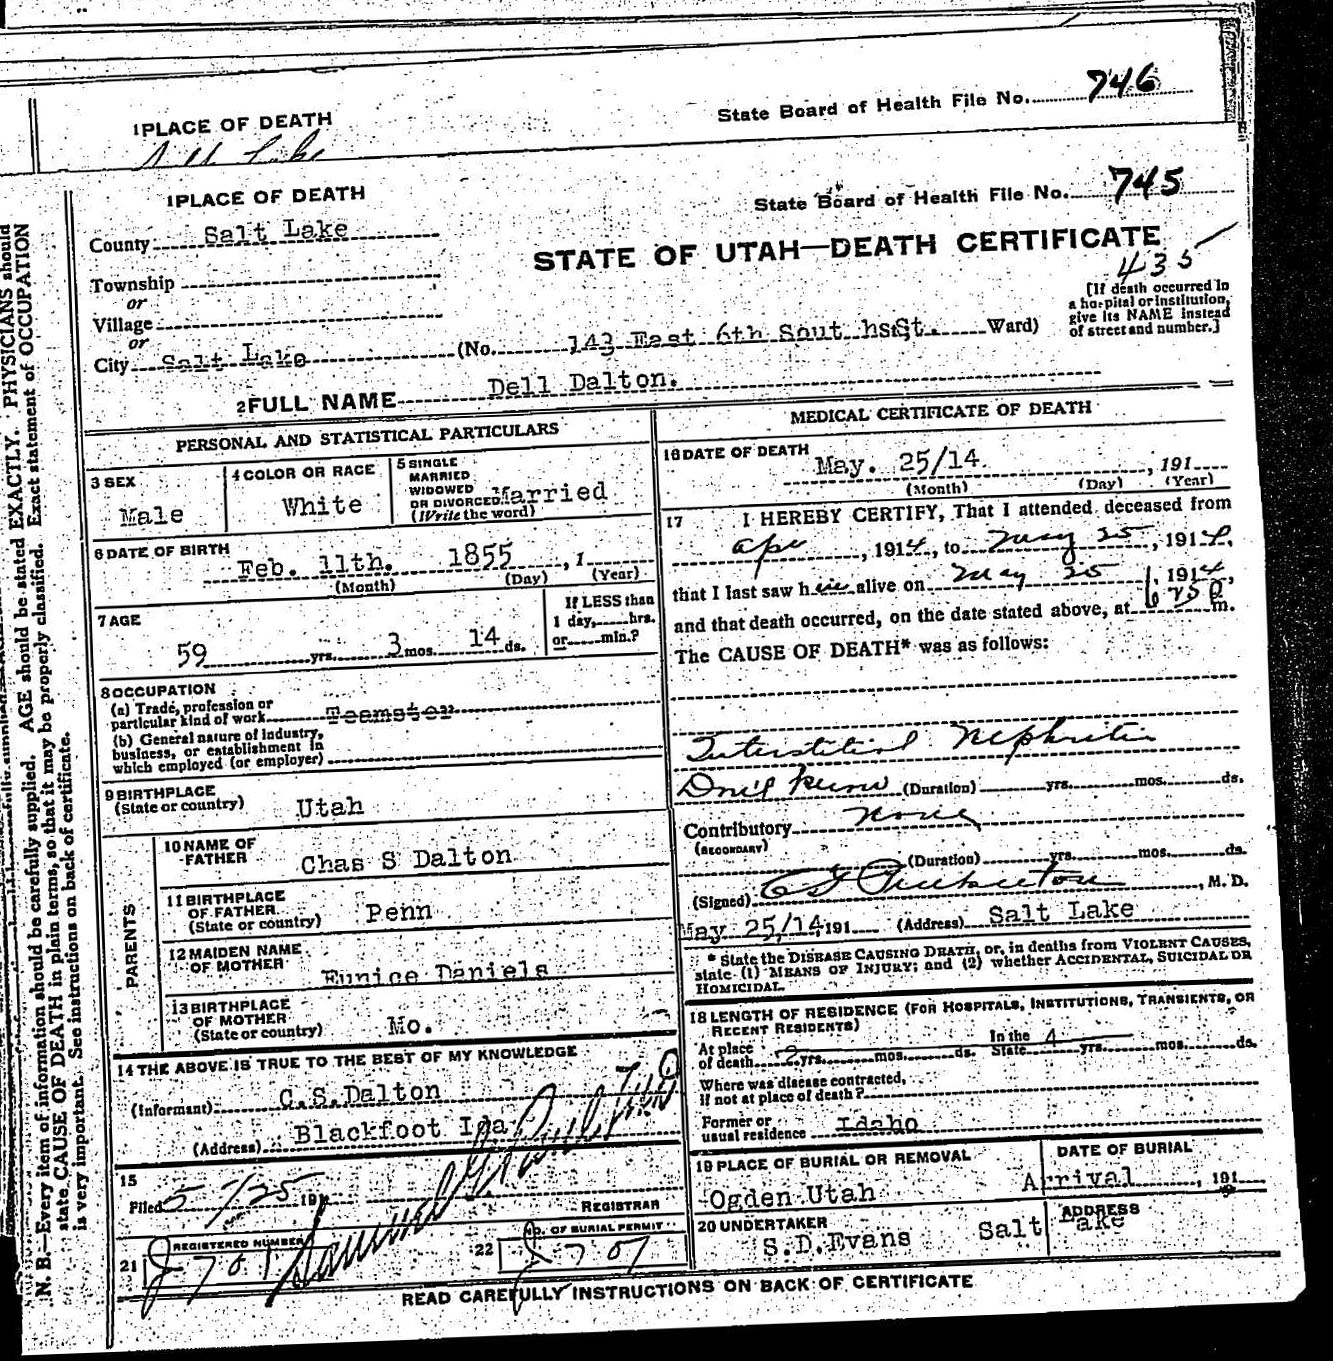 1 PLACE OF DEATH
State Board of Health File No. 746
1 PLACE OF DEATH
State Board of Health File No. 745
County Salt Lake
STATE OF UTAH—DEATH CERTIFICATE
435
Township
or
Village
or
City Salt Lake (No. 143 East 6th Sout hsSt. Ward)
[If death occurred in
a hospital or institution,
give its NAME instead
of street and number.]
2 FULL NAME Dell Dalton.
PERSONAL AND STATISTICAL PARTICULARS
3 SEX
Male
4 COLOR OR RACE
White
5 SINGLE
MARRIED
WIDOWED
OR DIVORCED Married
(Write the word)
6 DATE OF BIRTH
Feb. 11th. 1855, 1
(Month) (Day) (Year)
7 AGE
59 yrs. 3 mos. 14 ds.
If LESS than
1 day, hrs.
or min.?
8 OCCUPATION
(a) Trade, profession or
particular kind of work Teamster
(b) General nature of industry,
business, or establishment in
which employed (or employer)
9 BIRTHPLACE
(State or country) Utah
PARENTS
10 NAME OF
FATHER Chas S Dalton
11 BIRTHPLACE
OF FATHER
(State or country) Penn
12 MAIDEN NAME
OF MOTHER Eunice Daniels
13 BIRTHPLACE
OF MOTHER
(State or country) Mo.
14 THE ABOVE IS TRUE TO THE BEST OF MY KNOWLEDGE
(Informant) C.S.Dalton
(Address) Blackfoot Ida
15
Filed 5/25 191
REGISTRAR
REGISTERED NUMBER
21 J 701
NO. OF BURIAL PERMIT
22 J 707
MEDICAL CERTIFICATE OF DEATH
16 DATE OF DEATH
May. 25/14 , 191
(Month) (Day) (Year)
17 I HEREBY CERTIFY, That I attended deceased from
apr , 1914, to May 25, 1914,
that I last saw him alive on May 25, 1914,
and that death occurred, on the date stated above, at 6 30 P m.
The CAUSE OF DEATH* was as follows:
Interstitial Nephritis
Don't Know (Duration) yrs. mos. ds.
Contributory None
(SECONDARY)
(Duration) yrs. mos. ds.
(Signed) , M. D.
May 25/14, 191 (Address) Salt Lake
* State the DISEASE CAUSING DEATH, or, in deaths from VIOLENT CAUSES,
state (1) MEANS OF INJURY; and (2) whether ACCIDENTAL, SUICIDAL OR
HOMICIDAL.
18 LENGTH OF RESIDENCE (FOR HOSPITALS, INSTITUTIONS, TRANSIENTS, OR
RECENT RESIDENTS)
At place
of death 2 yrs. mos. ds.
In the
State 4 yrs. mos. ds.
Where was disease contracted,
if not at place of death?
Former or
usual residence Idaho
19 PLACE OF BURIAL OR REMOVAL
Ogden Utah
DATE OF BURIAL
Arrival , 191
20 UNDERTAKER
S.D.Evans
ADDRESS
Salt Lake
READ CAREFULLY INSTRUCTIONS ON BACK OF CERTIFICATE
N. B.—Every item of information should be carefully supplied. AGE should be stated EXACTLY. PHYSICIANS should
state CAUSE OF DEATH in plain terms, so that it may be properly classified. Exact statement of OCCUPATION
is very important. See instructions on back of certificate.